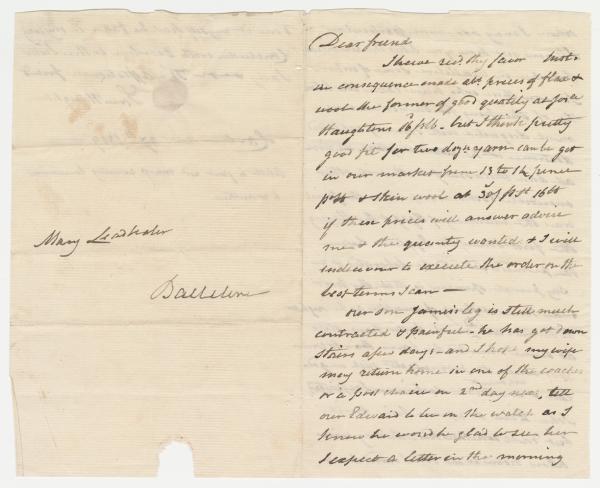 Mary Leadbeater
Ballitore
Dear friend
I have recd. thy favor
in consequence made abt. prices of flax &
wool the former of good quality at
Haughtons p lb. - but I think pretty
good fit for two doz. yarn can be got
in our market from 13 to 14 pence
p lb & skin wool at p St. 16 lb
if these prices will answer advise
me & the quantity wanted & I will
endeavour to execute the order on the
best terms I can —
Our son James's leg is still much
contracted & painful - he has got down
stairs a few days - and I hope my wife
may return home in one of the coaches
or a post chaise on 2nd day next, tell
our Edward to be on the watch as I
know he would be glad to see her
I expect a letter in the morning